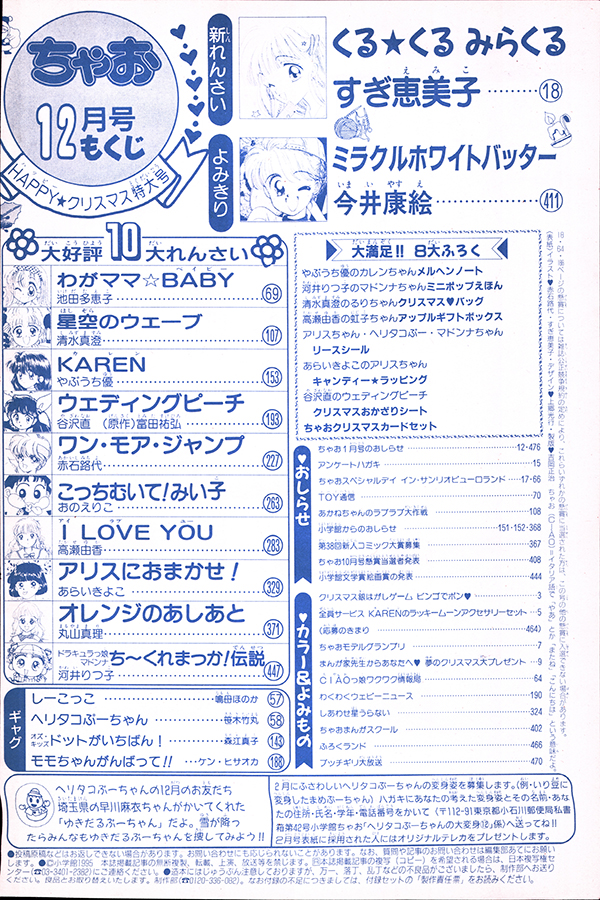 ちゃお
12月号
もくじ
HAPPY★クリスマス特大号
新れんさい
くる★くる みらくる
すぎ恵美子………⑱
よみきり
ミラクルホワイトバッター
今井康絵………411
大好評10大れんさい
わがママ☆BABY
池田多恵子………69
星空のウェーブ
清水真澄………107
KAREN
やぶうち優………153
ウェディングピーチ
谷沢直 (原作)富田祐弘………193
ワン・モア・ジャンプ
赤石路代………227
こっちむいて!みい子
おのえりこ………263
I LOVE YOU
高瀬由香………283
アリスにおまかせ!
あらいきよこ………329
オレンジのあしあと
丸山真理………371
ドラキュラッ娘マドンナ ち〜くれまっか!伝説
河井りつ子………447
ギャグ
しーこっこ………鳴田ほのか 57
ヘリタコぷーちゃん………笹木竹丸 58
オズ・キッズ ドットがいちばん!………森江真子 143
モモちゃんがんばって!!………ケン・ヒサオカ 188
大満足!! 8大ふろく
やぶうち優のカレンちゃんメルヘンノート
河井りつ子のマドンナちゃんミニポップえほん
清水真澄のるりちゃんクリスマス♥バッグ
高瀬由香の虹子ちゃんアップルギフトボックス
アリスちゃん・ヘリタコぷー・マドンナちゃん
リースシール
あらいきよこのアリスちゃん
キャンディー★ラッピング
谷沢直のウェディングピーチ
クリスマスおかざりシート
ちゃおクリスマスカードセット
♥おしらせ
ちゃお1月号のおしらせ………12・476
アンケートハガキ………15
ちゃおスペシャルデイ イン・サンリオピューロランド…17・66
TOY通信………70
あかねちゃんのラブラブ大作戦………108
小学館からのおしらせ………151・152・368
第38回新人コミック大賞募集………367
ちゃお10月号懸賞当選者発表………408
小学館文学賞絵画賞の発表………444
♥カラー&よみもの
クリスマス銀はがしゲーム ビンゴでポン♥………3
全員サービス KARENのラッキームーンアクセサリーセット…5
(応募のきまり………464)
ちゃおモデルグランプリ………7
まんが家先生からあなたへ♥ 夢のクリスマス大プレゼント…9
CIAOっ娘ワクワク情報局………64
わくわくウェビーニュース………190
しあわせ星うらない………324
ちゃおまんがスクール………402
ふろくランド………466
プッチギリ大放送………470
ヘリタコぷーちゃんの12月のお友だち
埼玉県の早川麻衣ちゃんがかいてくれた
「ゆきだるぷーちゃん」だよ。雪が降っ
たらみんなもゆきだるぷーちゃんを捜してみよう!!
2月にふさわしいヘリタコぷーちゃんの変身姿を募集します。(例・いり豆に
変身したまめぷーちゃん) ハガキにあなたの考えた変身姿とその名前・あな
たの住所・氏名・学年・電話番号をかいて(〒112-91東京都小石川郵便局私書
箱第42号小学館ちゃお「ヘリタコぷーちゃんの大変身2」係)へ送ってね!!
2月号表紙に採用された人にはオリジナルテレカをプレゼントします。
●投稿原稿などはお返しできない場合があります。お問い合わせにも応じられないことがあります。なお、質問や記事のお問い合わせは編集部あてにお願い
します。●©小学館1995 本誌掲載記事の無断複製、転載、上演、放送等を禁じます。 ®本誌掲載記事の複写(コピー)を希望される場合は、日本複写権セ
ンター(☎03-3401-2382)にご連絡ください。●造本にはじゅうぶん注意しておりますが、万一、落丁、乱丁などの不良品がございましたら、制作部へお送り
ください。良品とお取り替えいたします。制作部(☎0120-336-082)。なお付録の不足につきましては、付録セットの「製作責任票」をお読みください。